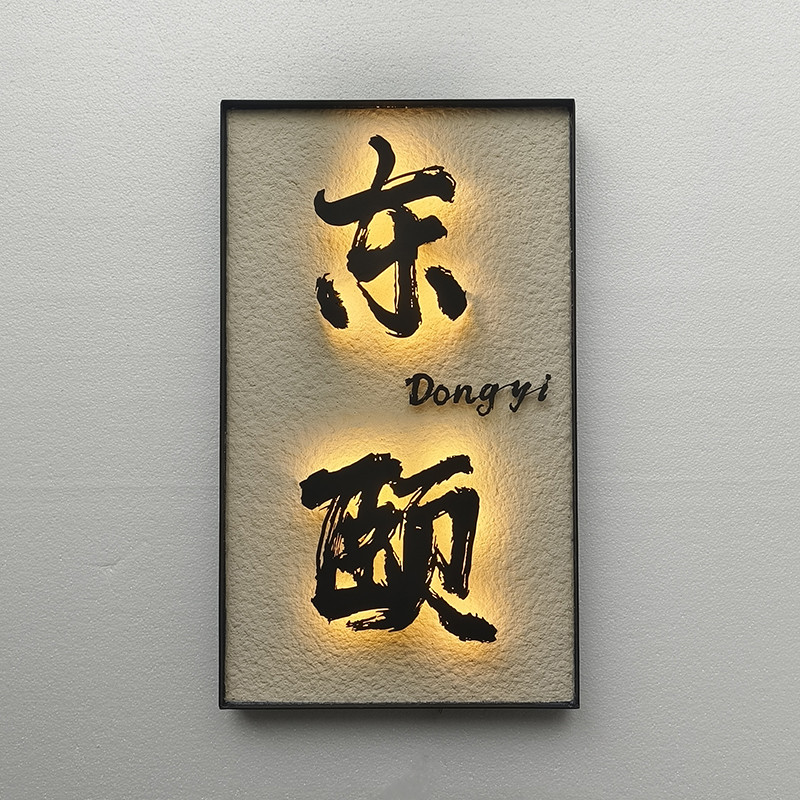 东
Dongyi
颐